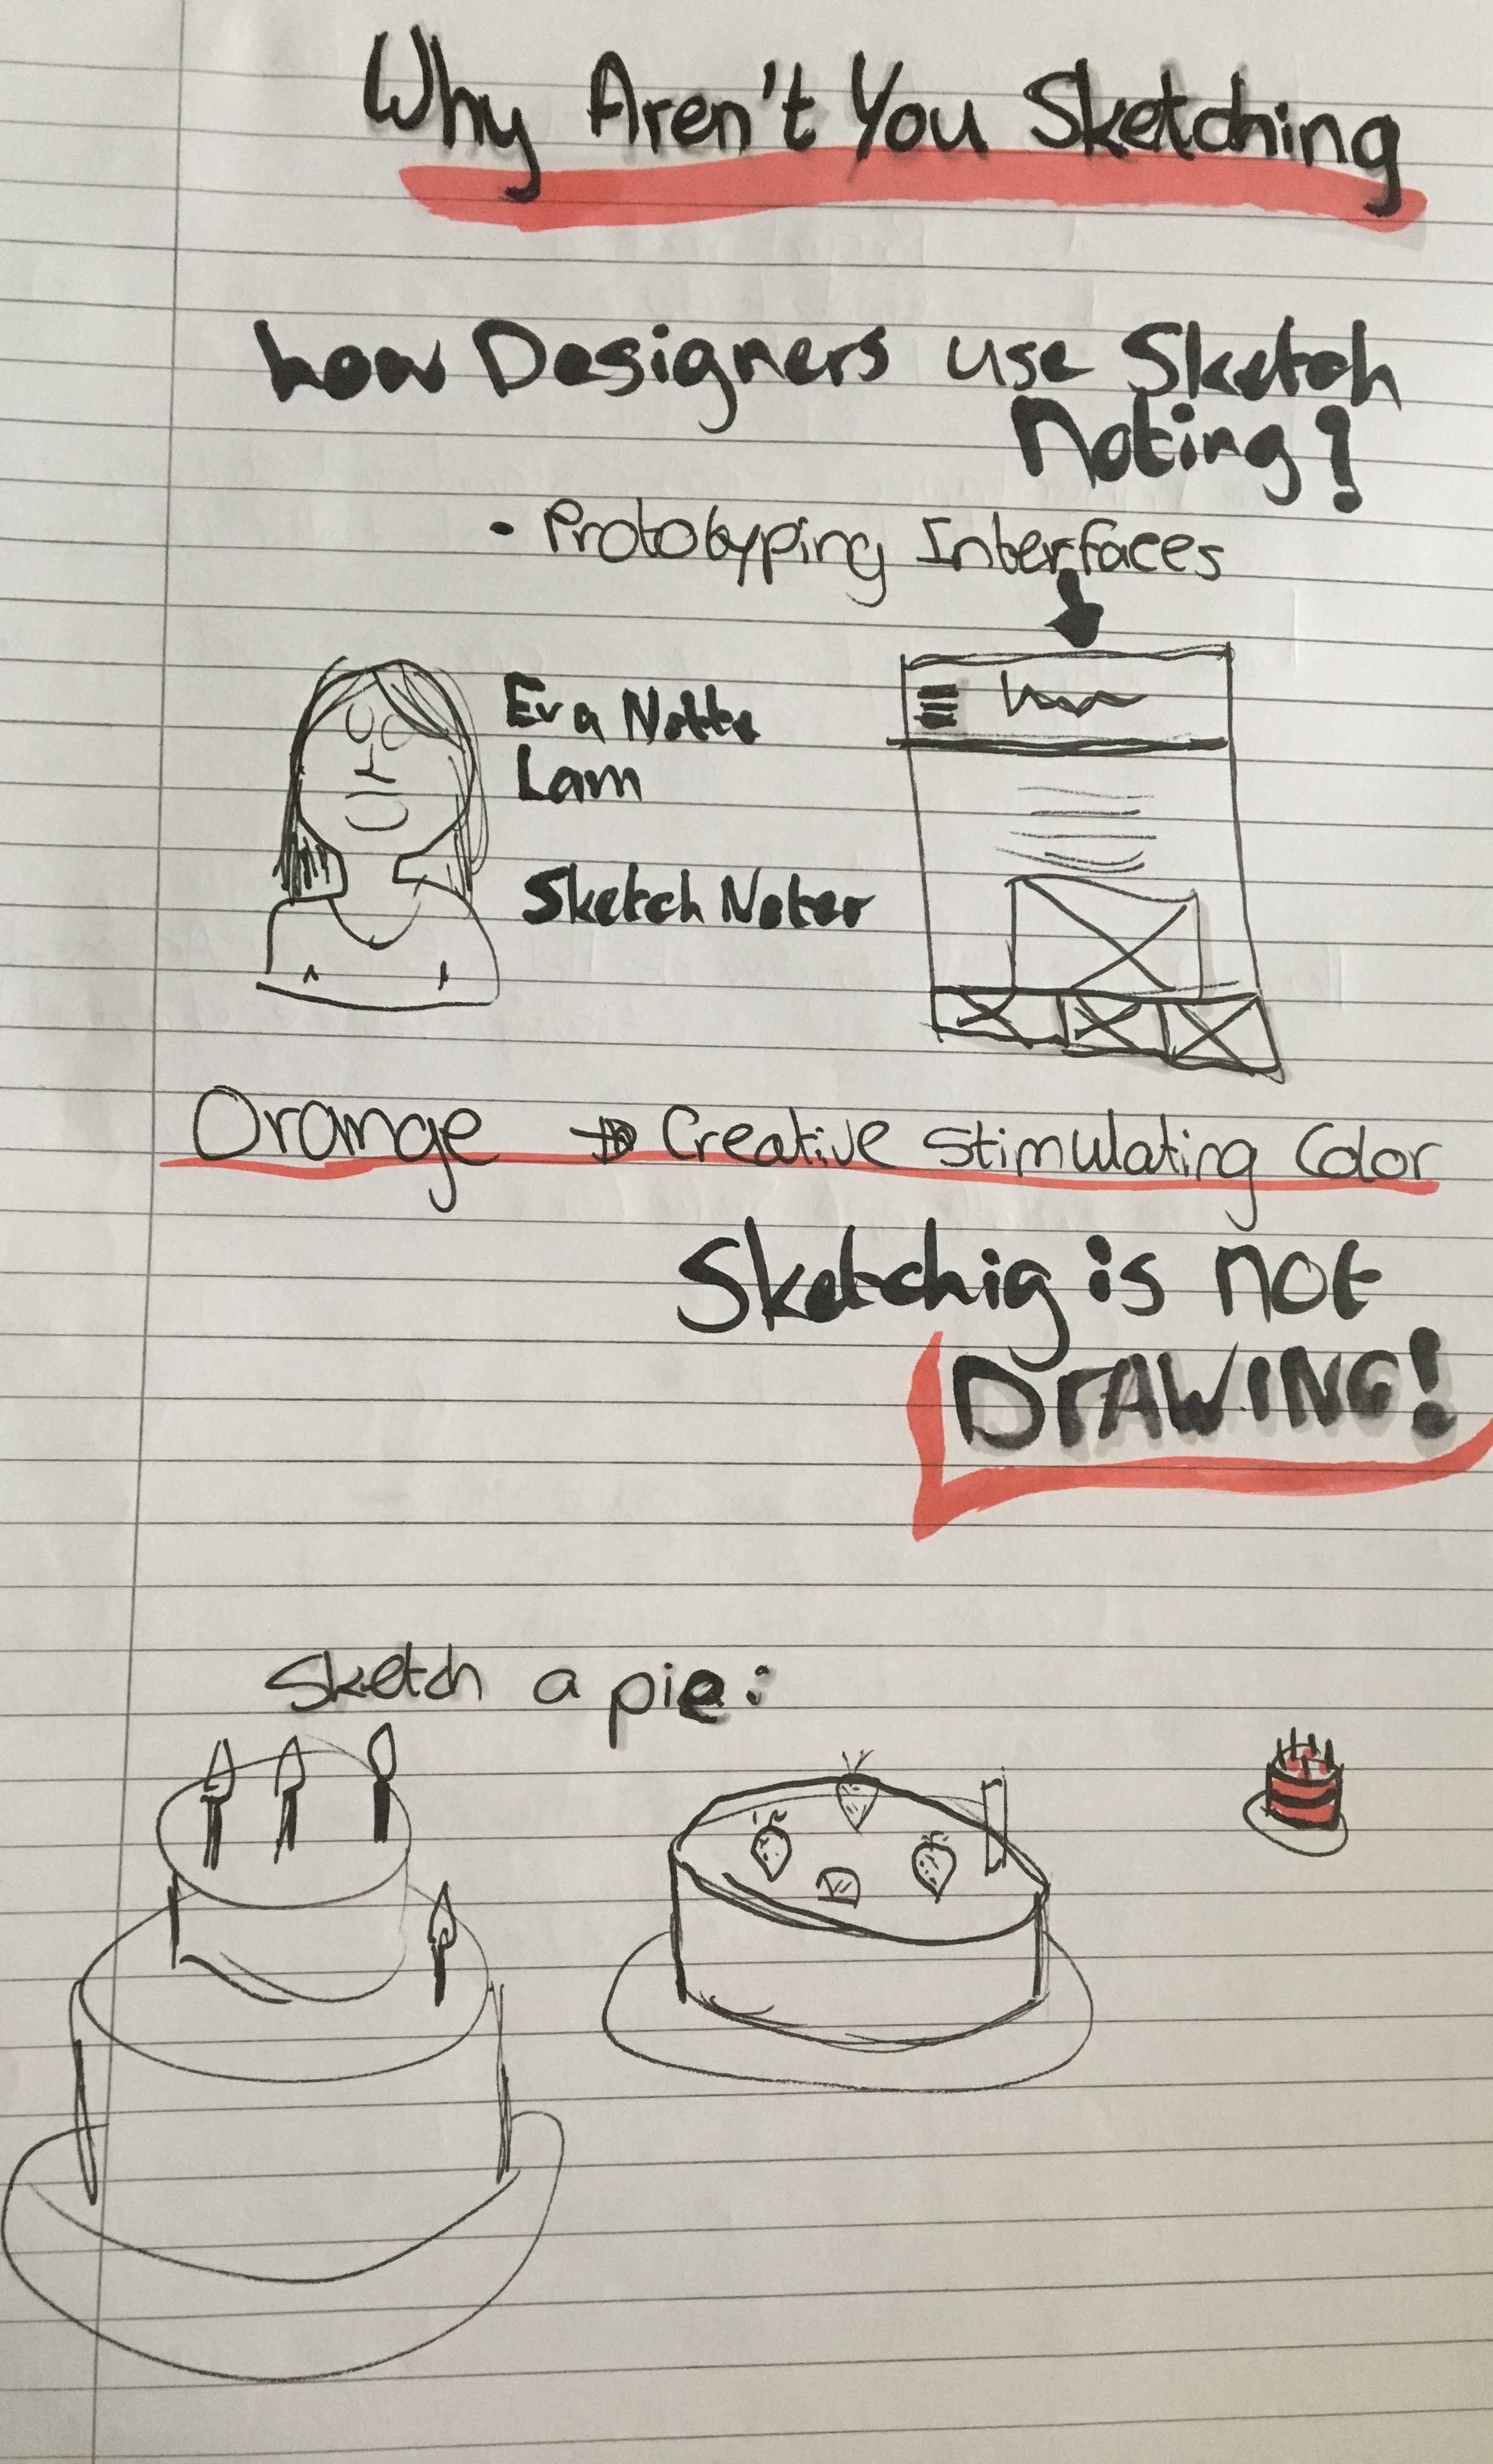 Why Aren't You Sketching
how Designers use Sketch
Noting?
• Prototyping Interfaces
Eva Notte
Lam
Sketch Noter
Orange → Creative Stimulating Color
Sketchig is not
DrAWING!
Sketch a pie: